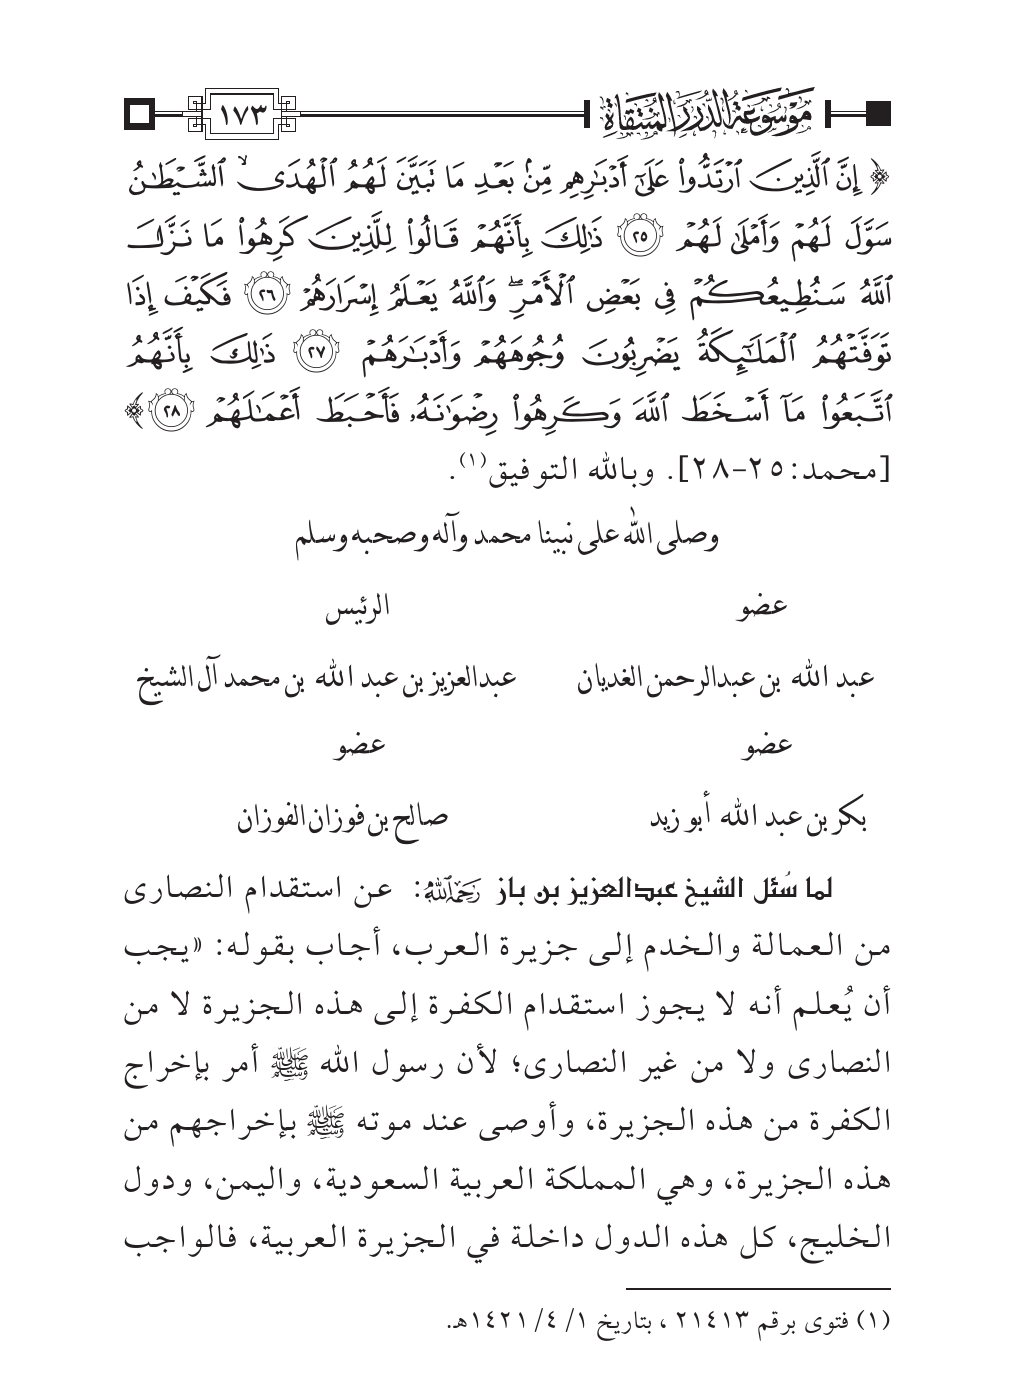 موسوعة الدرر المنتقاة ١٧٣
﴿إِنَّ ٱلَّذِينَ ٱرْتَدُّوا۟ عَلَىٰٓ أَدْبَـٰرِهِم مِّنۢ بَعْدِ مَا تَبَيَّنَ لَهُمُ ٱلْهُدَى ۙ ٱلشَّيْطَـٰنُ
سَوَّلَ لَهُمْ وَأَمْلَىٰ لَهُمْ ٢٥ ذَٰلِكَ بِأَنَّهُمْ قَالُوا۟ لِلَّذِينَ كَرِهُوا۟ مَا نَزَّلَ
ٱللَّهُ سَنُطِيعُكُمْ فِى بَعْضِ ٱلْأَمْرِ ۖ وَٱللَّهُ يَعْلَمُ إِسْرَارَهُمْ ٢٦ فَكَيْفَ إِذَا
تَوَفَّتْهُمُ ٱلْمَلَـٰٓئِكَةُ يَضْرِبُونَ وُجُوهَهُمْ وَأَدْبَـٰرَهُمْ ٢٧ ذَٰلِكَ بِأَنَّهُمُ
ٱتَّبَعُوا۟ مَآ أَسْخَطَ ٱللَّهَ وَكَرِهُوا۟ رِضْوَٰنَهُۥ فَأَحْبَطَ أَعْمَـٰلَهُمْ ٢٨﴾
[محمد: ٢٥-٢٨]. وبالله التوفيق(١).
وصلى الله على نبينا محمد وآله وصحبه وسلم
عضو الرئيس
عبد الله بن عبدالرحمن الغديان عبدالعزيز بن عبد الله بن محمد آل الشيخ
عضو عضو
بكر بن عبد الله أبو زيد صالح بن فوزان الفوزان
لما سُئل الشيخ عبدالعزيز بن باز رحمه الله: عن استقدام النصارى
من العمالة والخدم إلى جزيرة العرب، أجاب بقوله: «يجب
أن يُعلم أنه لا يجوز استقدام الكفرة إلى هذه الجزيرة لا من
النصارى ولا من غير النصارى؛ لأن رسول الله ﷺ أمر بإخراج
الكفرة من هذه الجزيرة، وأوصى عند موته ﷺ بإخراجهم من
هذه الجزيرة، وهي المملكة العربية السعودية، واليمن، ودول
الخليج، كل هذه الدول داخلة في الجزيرة العربية، فالواجب
(١) فتوى برقم ٢١٤١٣ ، بتاريخ ١/ ٤/ ١٤٢١هـ.